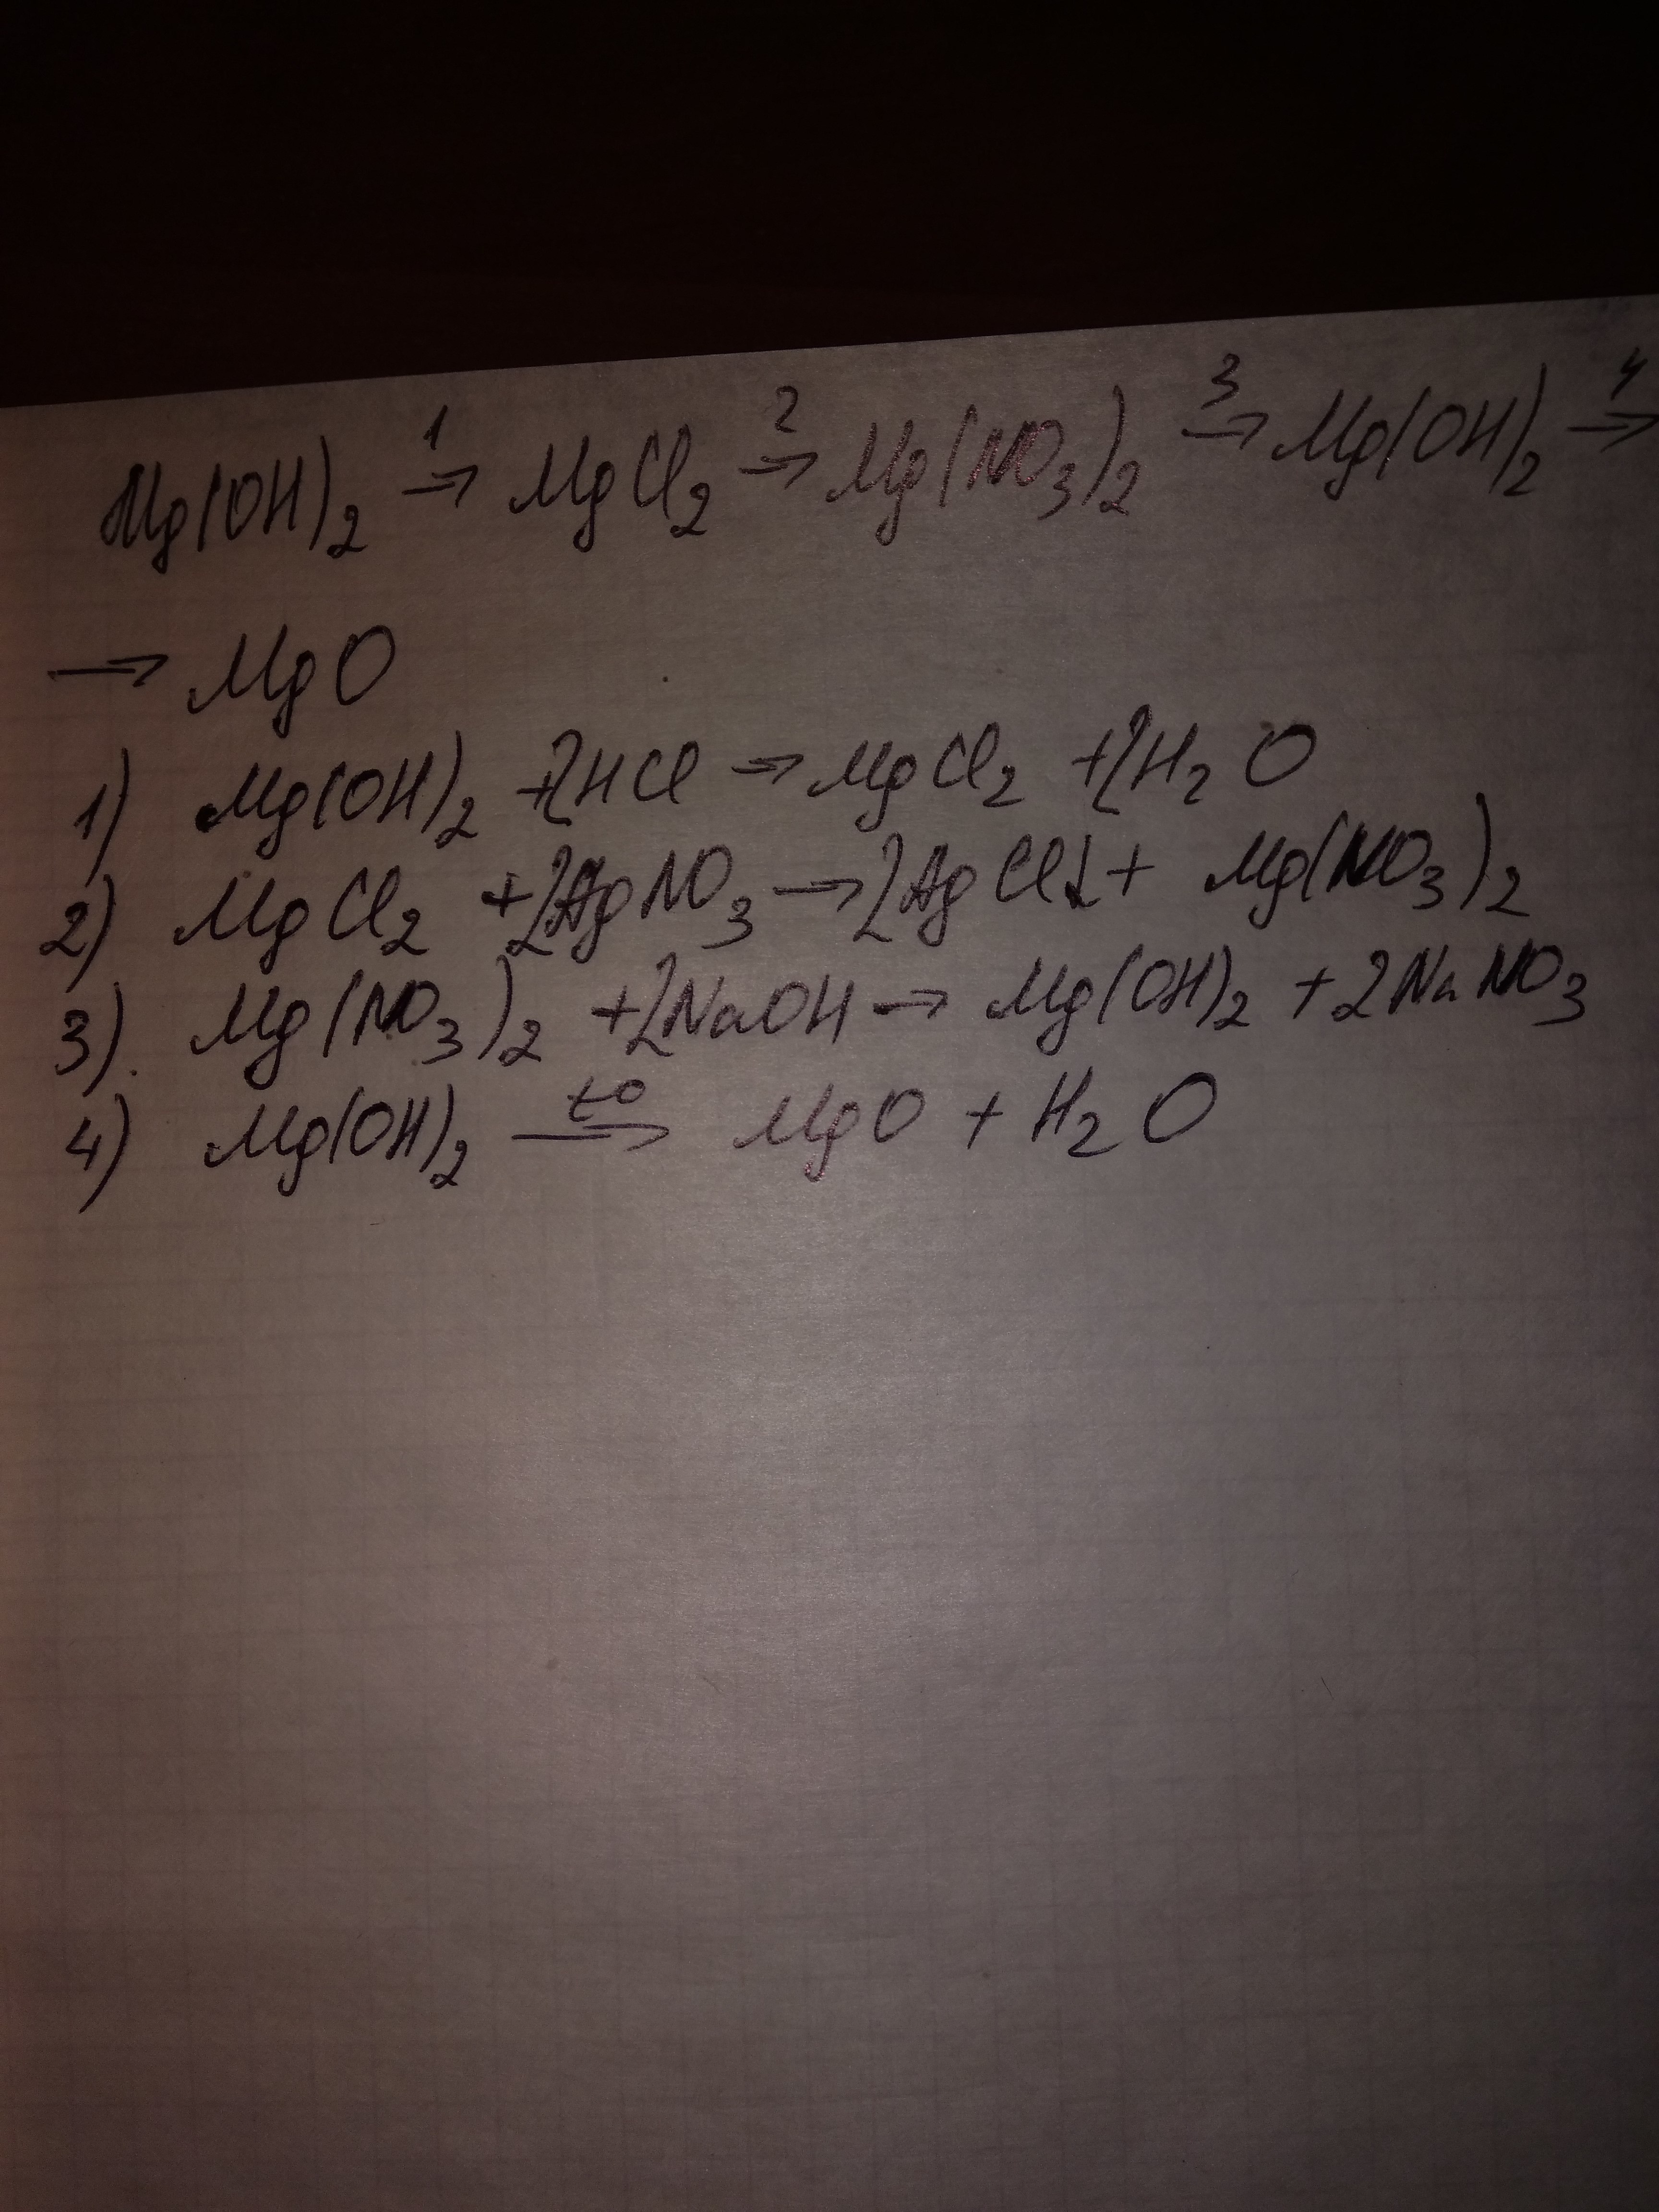 Mg(OH)₂ →¹ MgCl₂ →² Mg(NO₃)₂ →³ Mg(OH)₂ →⁴
→ MgO
1) Mg(OH)₂ + 2HCl → MgCl₂ + 2H₂O
2) MgCl₂ + 2AgNO₃ → 2AgCl↓ + Mg(NO₃)₂
3) Mg(NO₃)₂ + 2NaOH → Mg(OH)₂ + 2NaNO₃
4) Mg(OH)₂ →t° MgO + H₂O